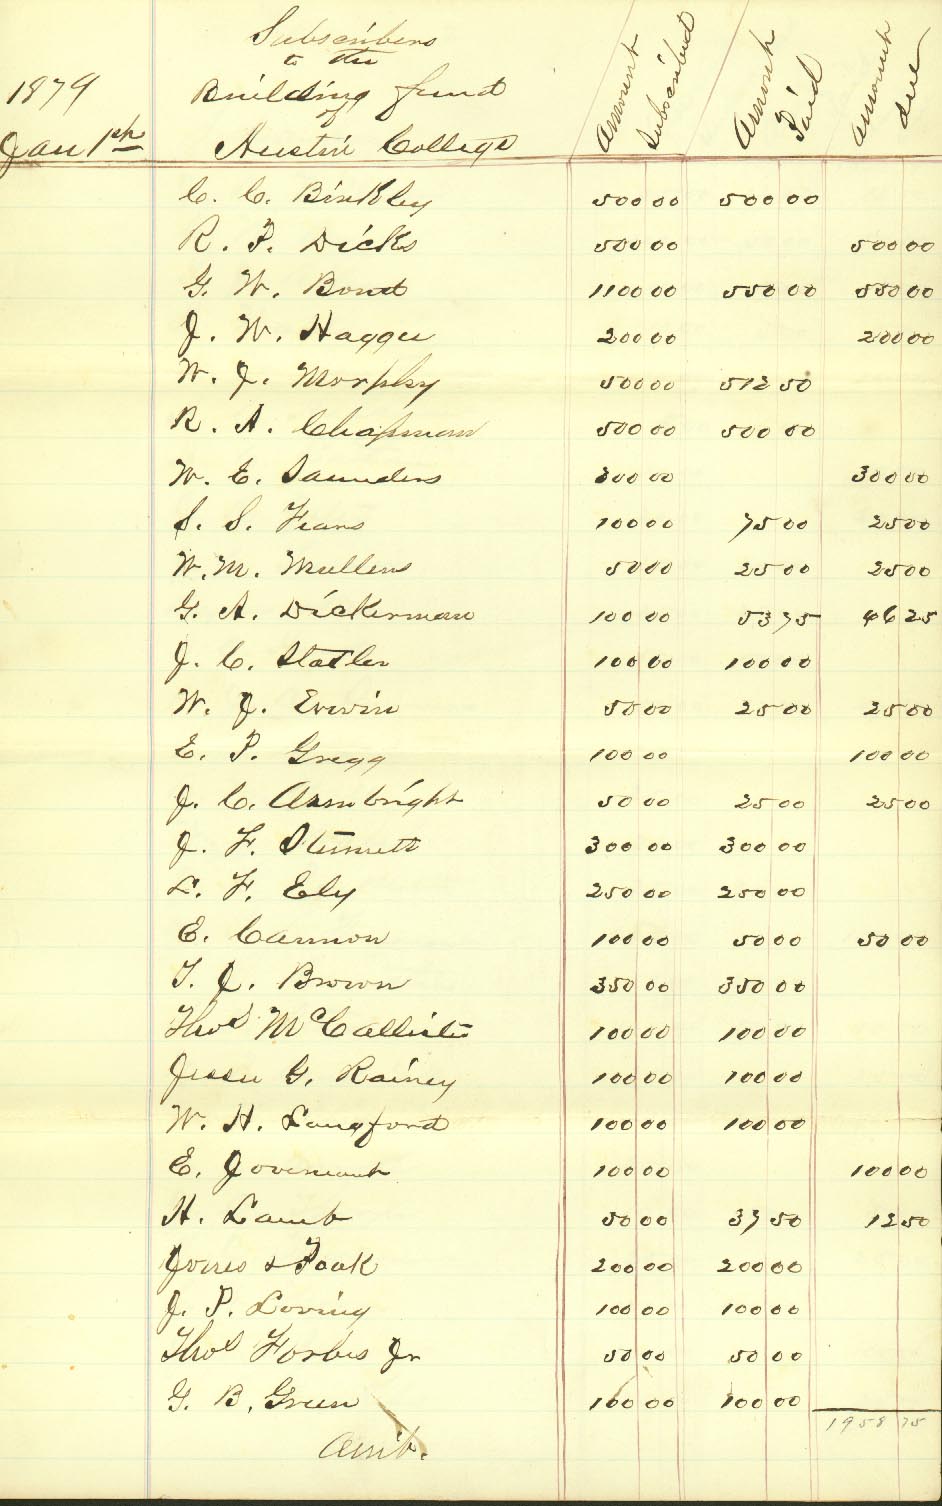 1879
Jan 1st
Subscribers
to the
Building fund
of
Austin College
Amount Subscribed
Amount Paid
Amount due
C. C. Binkley 500 00 500 00
R. P. Dicks 500 00 500 00
G. W. Bond 1100 00 550 00 550 00
J. W. Hagger 200 00 200 00
W. J. Morphy 500 00 512 50
R. A. Chapman 500 00 500 00
W. E. Saunders 300 00 300 00
S. S. Fears 100 00 75 00 25 00
W. M. Mullens 50 00 25 00 25 00
G. A. Dickerman 100 00 53 75 46 25
J. C. Statler 100 00 100 00
W. J. Erwin 50 00 25 00 25 00
E. P. Gregg 100 00 100 00
J. C. Armbright 50 00 25 00 25 00
J. F. Stinnett 300 00 300 00
L. F. Ely 250 00 250 00
E. Cannon 100 00 50 00 50 00
T. J. Brown 350 00 350 00
Thos McCallister 100 00 100 00
Jesse G. Rainey 100 00 100 00
W. H. Langford 100 00 100 00
E. 100 00 100 00
H. Lamb 50 00 37 50 12 50
Jones & 200 00 200 00
J. P. Loving 100 00 100 00
Thos Forbes Jr 50 00 50 00
G. B. Green 100 00 100 00
1958 75